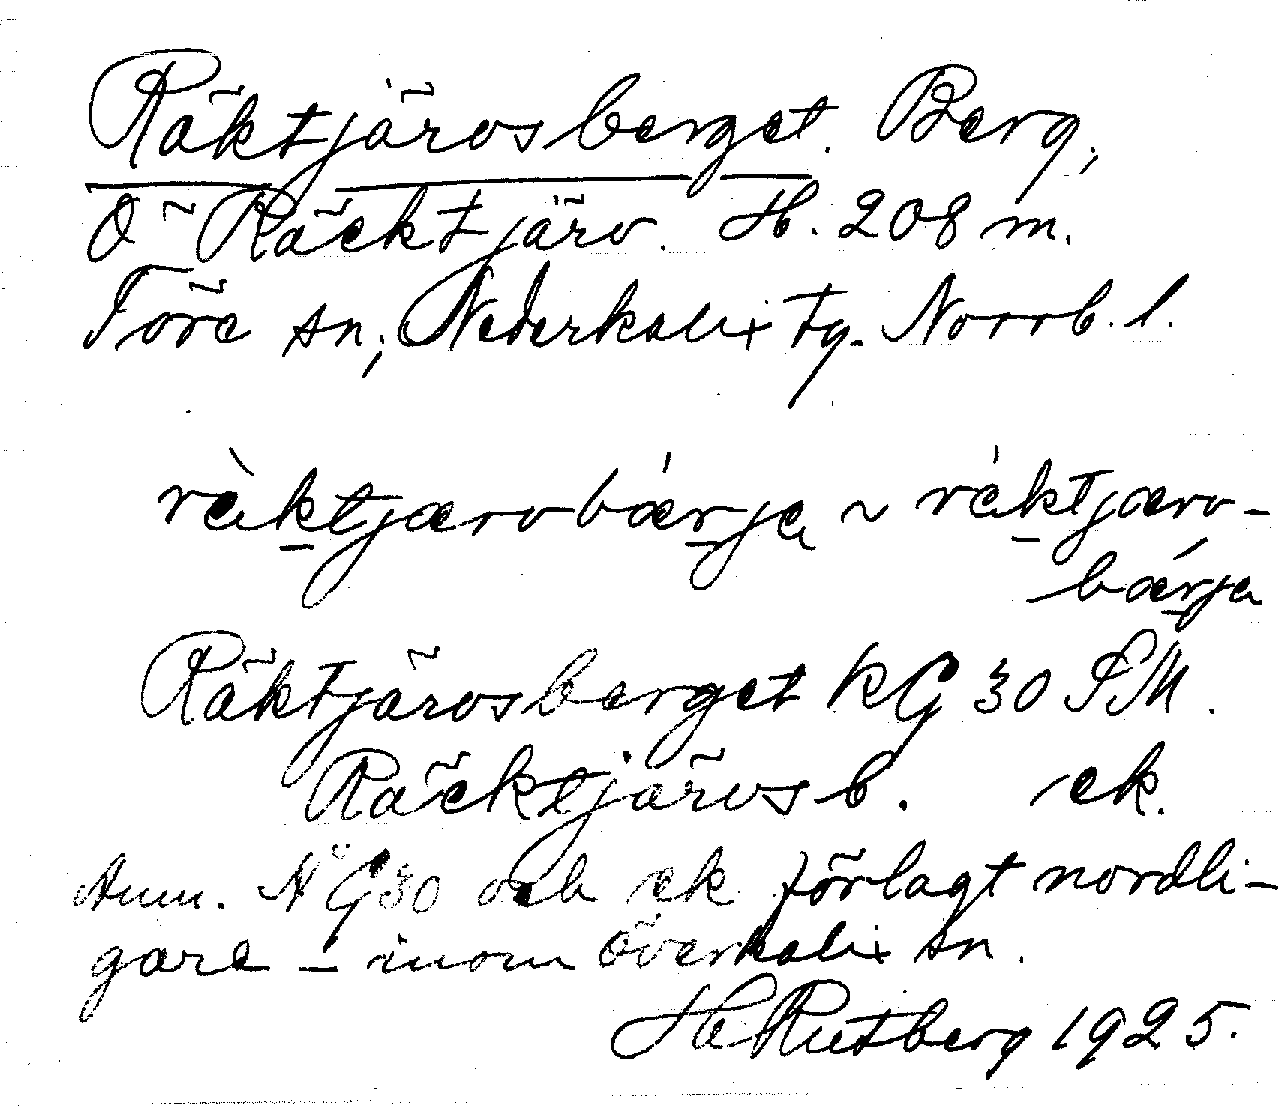 Räktjärvsberget. Berg,
O ~ Räcktjärv. H. 208 m.
Töre sn, Nederkalix tg. Norrb. l.
rèktjærvbǽrja ~ rèktjærv-
bǽrja
Räktjärvsberget KG 30 SM.
Räcktjärvsb. ek.
Anm. På G30 och ek förlagt nordli-
gare – inom Överkalix sn.
HRutberg 1925.